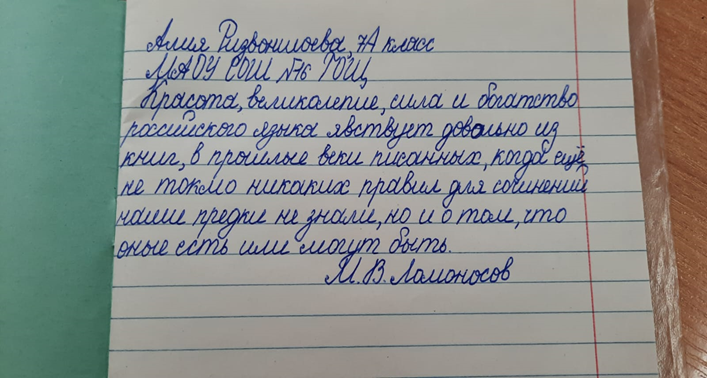 Алия Ризвонилоева, 7А класс
МАОУ СОШ №76 ГОЩ
Красота, великолепие, сила и богатство
российского языка явствует довольно из
книг, в прошлые веки писанных, когда ещё
не токмо никаких правил для сочинений
наши предки не знали, но и о том, что
оные есть или могут быть.
М. В. Ломоносов